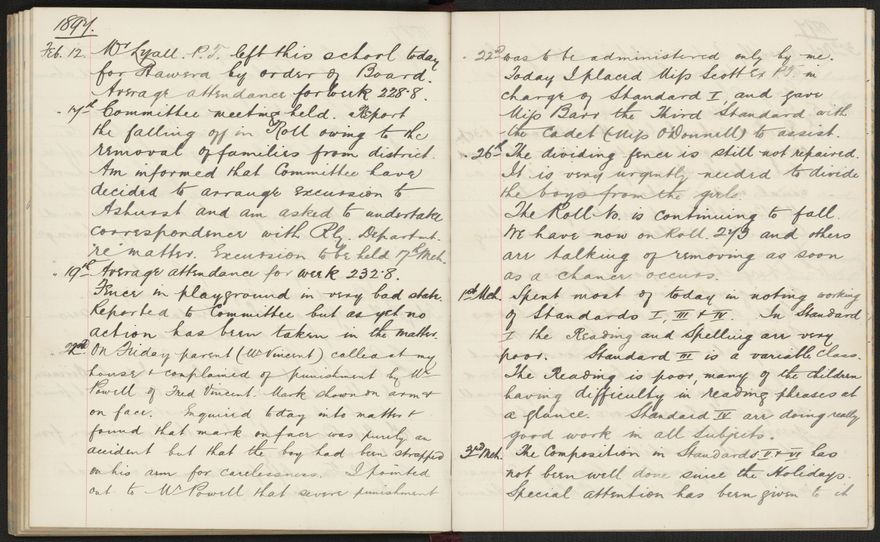 1897.
Feb. 12. Mr Lyall. P.T. left this school today
for Hawera by order of Board.
Average attendance for week 228.8.
" 17th Committee meeting held. Report
the falling off in Roll owing to the
removal of families from district.
Am informed that Committee have
decided to arrange excursion to
Ashurst and am asked to undertake
correspondence with Rly. Departmt.
're' matter. Excursion to be held 17th Mch.
" 19th Average attendance for week 232.8.
Fence in playground in very bad state.
Reported to Committee but as yet no
action has been taken in the matter.
" 22nd On Friday parent (Mr Vincent) called at my
house & complained of punishment by Mr
Powell of Fred Vincent. Mark shown on arm &
on face. Enquired today into matter &
found that mark on face was purely an
accident but that the boy had been strapped
on his arm for carelessness. I pointed
out to Mr Powell that severe punishment
" 22nd was to be administered only by me.
Today I placed Miss Scott Ex P.T. in
charge of Standard I, and gave
Miss Barr the Third Standard with
the Cadet (Miss O'Donnell) to assist.
" 26th The dividing fence is still not repaired.
It is very urgently needed to divide
the boys from the girls.
The Roll No. is continuing to fall.
We have now on Roll 243 and others
are talking of removing as soon
as a chance occurs.
1st Mch. Spent most of today in noting working
of Standards I, III & IV. In Standard
I the Reading and Spelling are very
poor. Standard III is a variable class.
The Reading is poor, many of the children
having difficulty in reading phrases at
a glance. Standard IV are doing really
good work in all subjects.
3rd Mch. The Composition in Standards V & VI has
not been well done since the Holidays.
Special attention has been given to it